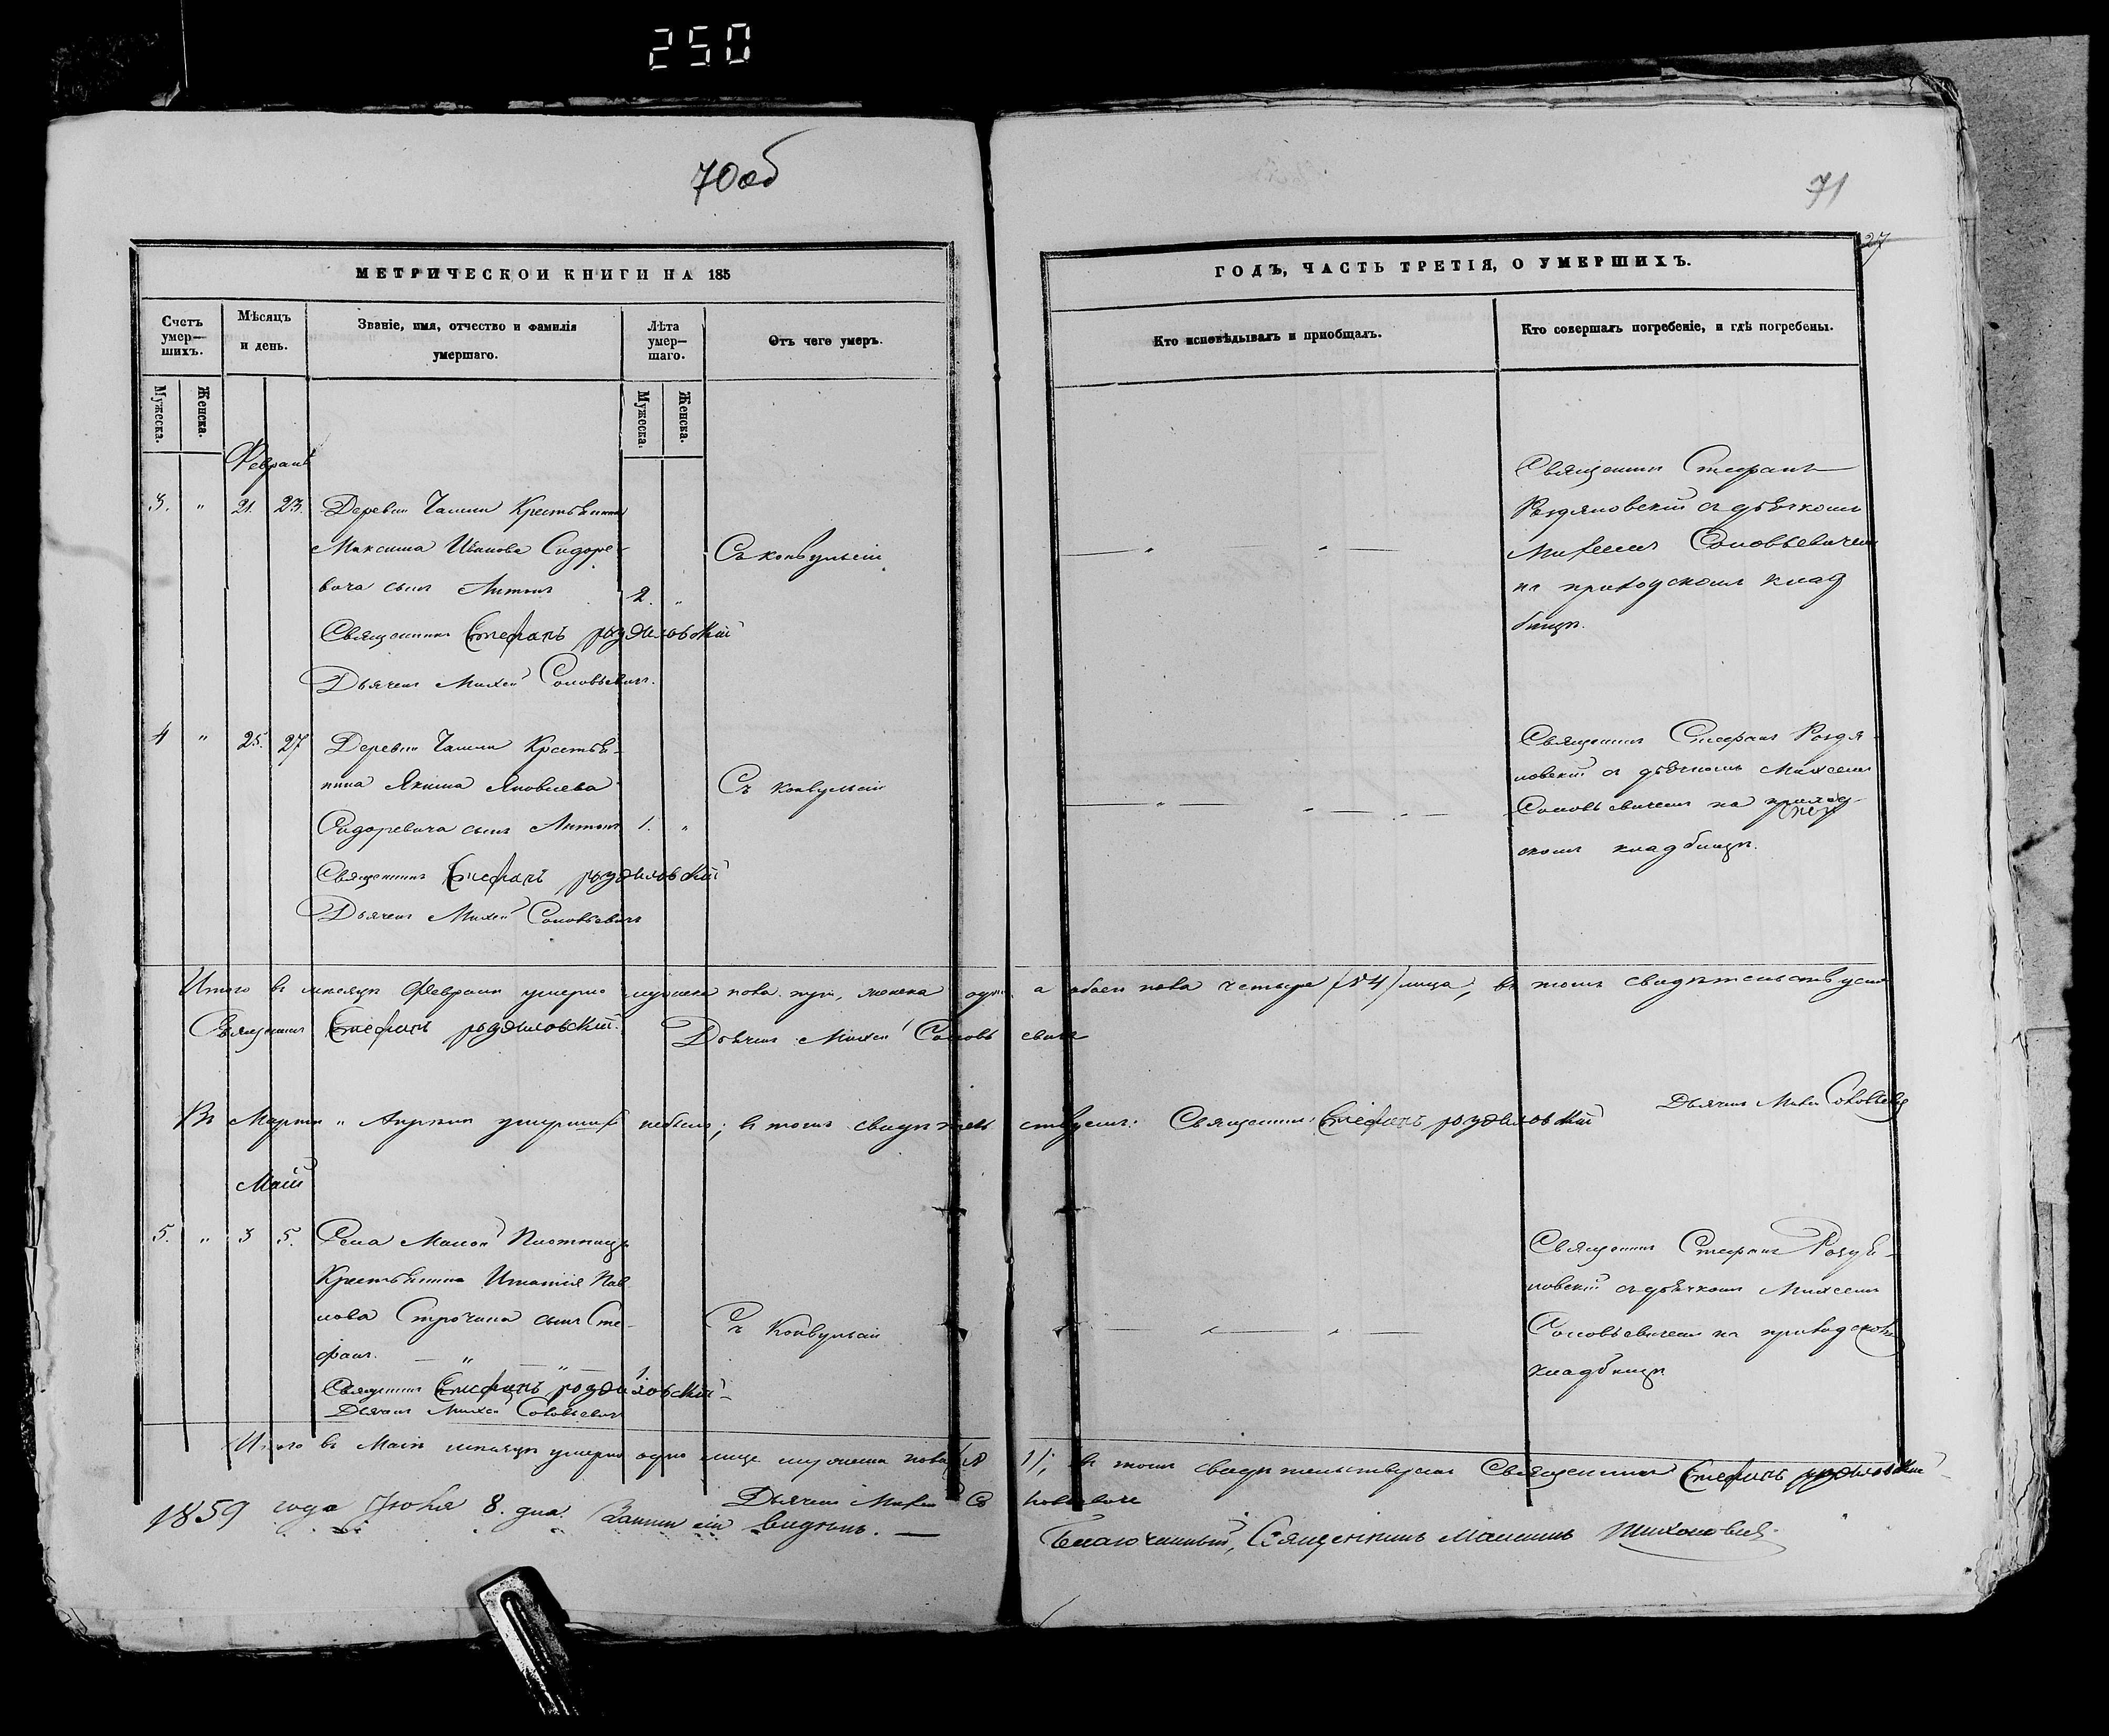 250
70об
71
27
МЕТРИЧЕСКОЙ КНИГИ НА 185
ГОДЪ, ЧАСТЬ ТРЕТІЯ, О УМЕРШИХЪ.
Счетъ умер—шихъ.
Мѣсяцъ и день.
Званіе, имя, отчество и фамилія умершаго.
Лѣта умер—шаго.
Отъ чего умеръ.
Кто исповѣдывалъ и пріобщалъ.
Кто совершалъ погребеніе, и гдѣ погребены.
Мужеска.
Женска.
Мужеска.
Женска.
Февраль
3. " 21. 23. Деревни Крестьянина
Максима Иванова Сидоре-
вича сынъ Антонъ 2. "
Съ конвульсіи
Священникъ Стефанъ
съ дьячкомъ
Михеемъ Соловьевичемъ
на приходскомъ клад
бищѣ.
Священникъ Стефанъ
Дьячекъ Михей Соловьевичъ.
4 " 25. 27 Деревни Крестья-
нина Якима Яковлева
Сидоревича сынъ Антонъ 1. "
Съ конвульсіи
Священникъ Стефанъ
съ дьячкомъ Михеемъ
Соловьевичемъ на приход-
скомъ кладбищѣ.
Священникъ Стефанъ
Дьячекъ Михей Соловьевичъ
Итого въ мѣсяцѣ Февралѣ умерло мужеска пола три, женска одна а обоего пола четыре (№4) лица, въ томъ свидѣтельствуемъ
Священникъ Стефанъ Дьячекъ Михей Соловьевичъ
Въ Мартѣ и Апрѣлѣ умершихъ небыло; въ томъ свидѣтельствуемъ: Священникъ Стефанъ
Дьячекъ Михей Соловьевичъ
Май
5. " 3 5. Села Малой Плотницы
Крестьянина Игнатія Пав
лова сынъ Сте-
фанъ. — " — " — 1.
Съ Конвульсіи
Священникъ Стефанъ
съ дьячкомъ Михеемъ
Соловьевичемъ на приходскомъ
кладбищѣ
Священникъ Стефанъ
Дьячекъ Михей Соловьевичъ
Итого въ Маѣ мѣсяцѣ умерло одно лице мужеска пола (№ 1); въ томъ свидѣтельствуемъ Священникъ Стефанъ
Дьячекъ Михей Соловьевичъ
1859 года Іюня 8. дня. сіи видѣлъ. —
Благочинный, Священникъ